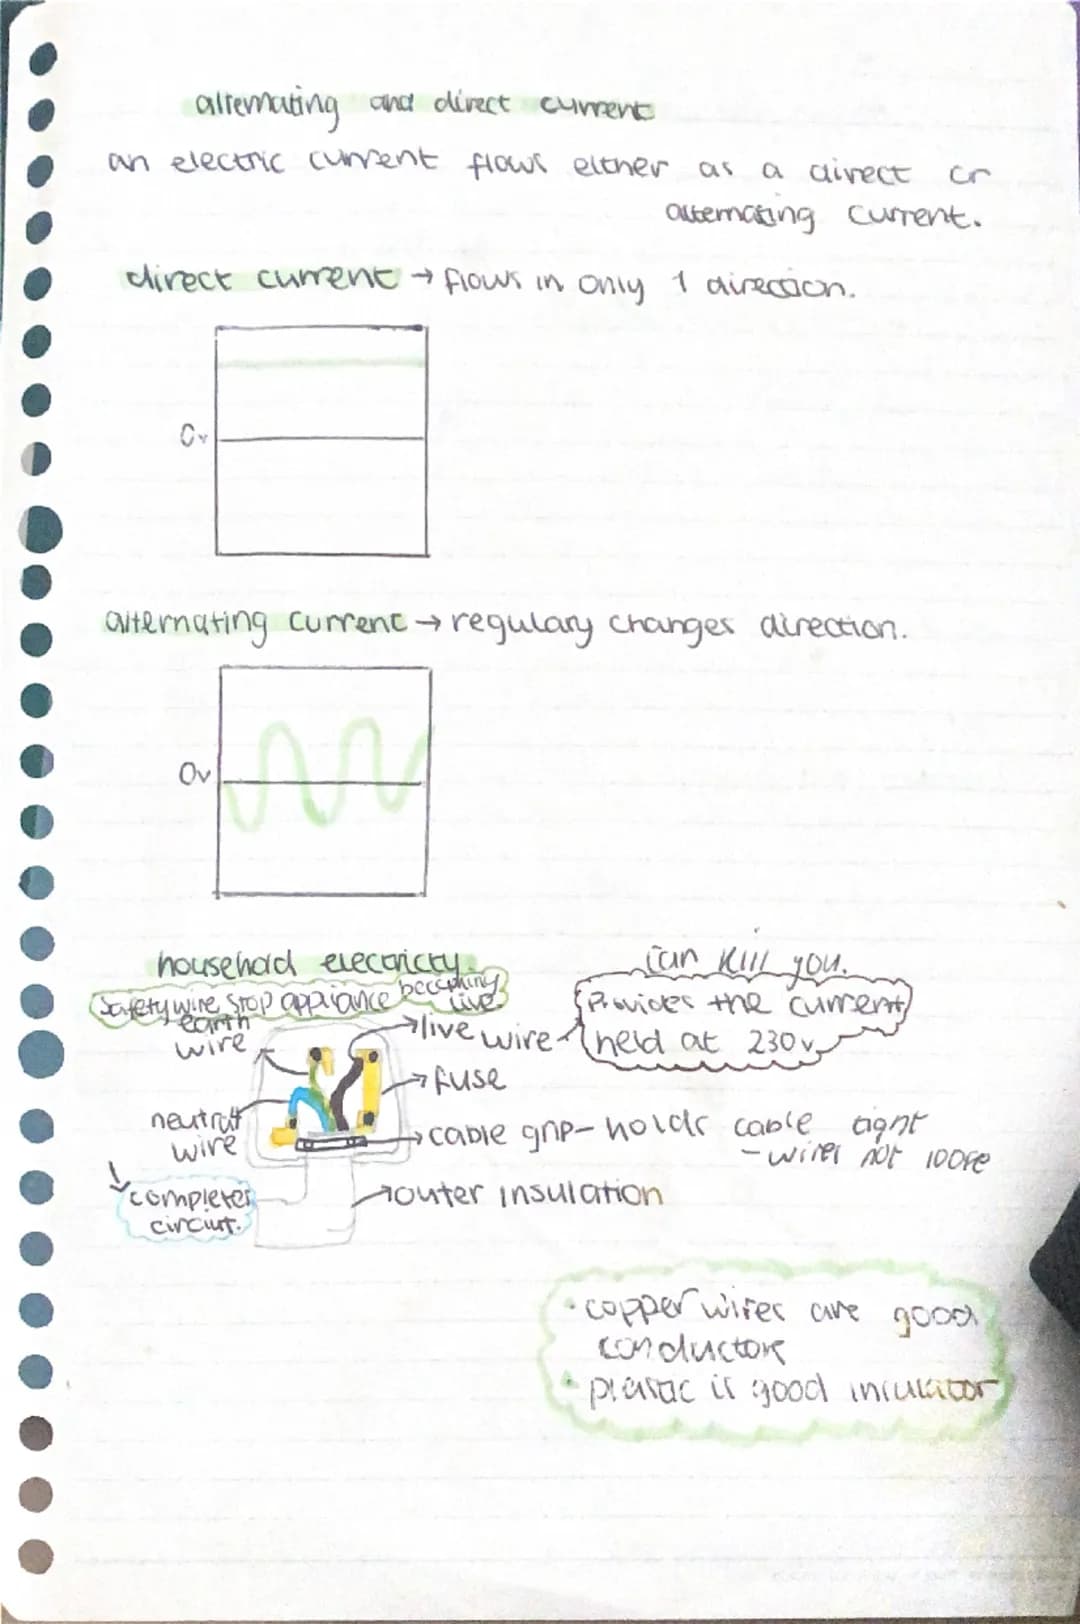 alternating and direct current
an electric current flows either as a direct or
alternating current.
direct current → flows in only 1 direction.
0v
alternating current → regulary changes direction.
0v
household electricty.
can kill you.
safety wire stop appliance becoming live.
Provides the current
held at 230v
earth
wire
live wire
fuse
neutral
wire
cable grip - holds cable tight
- wires not loose
completes
circuit.
outer insulation
• copper wires are good
conductors
• plastic is good insulator